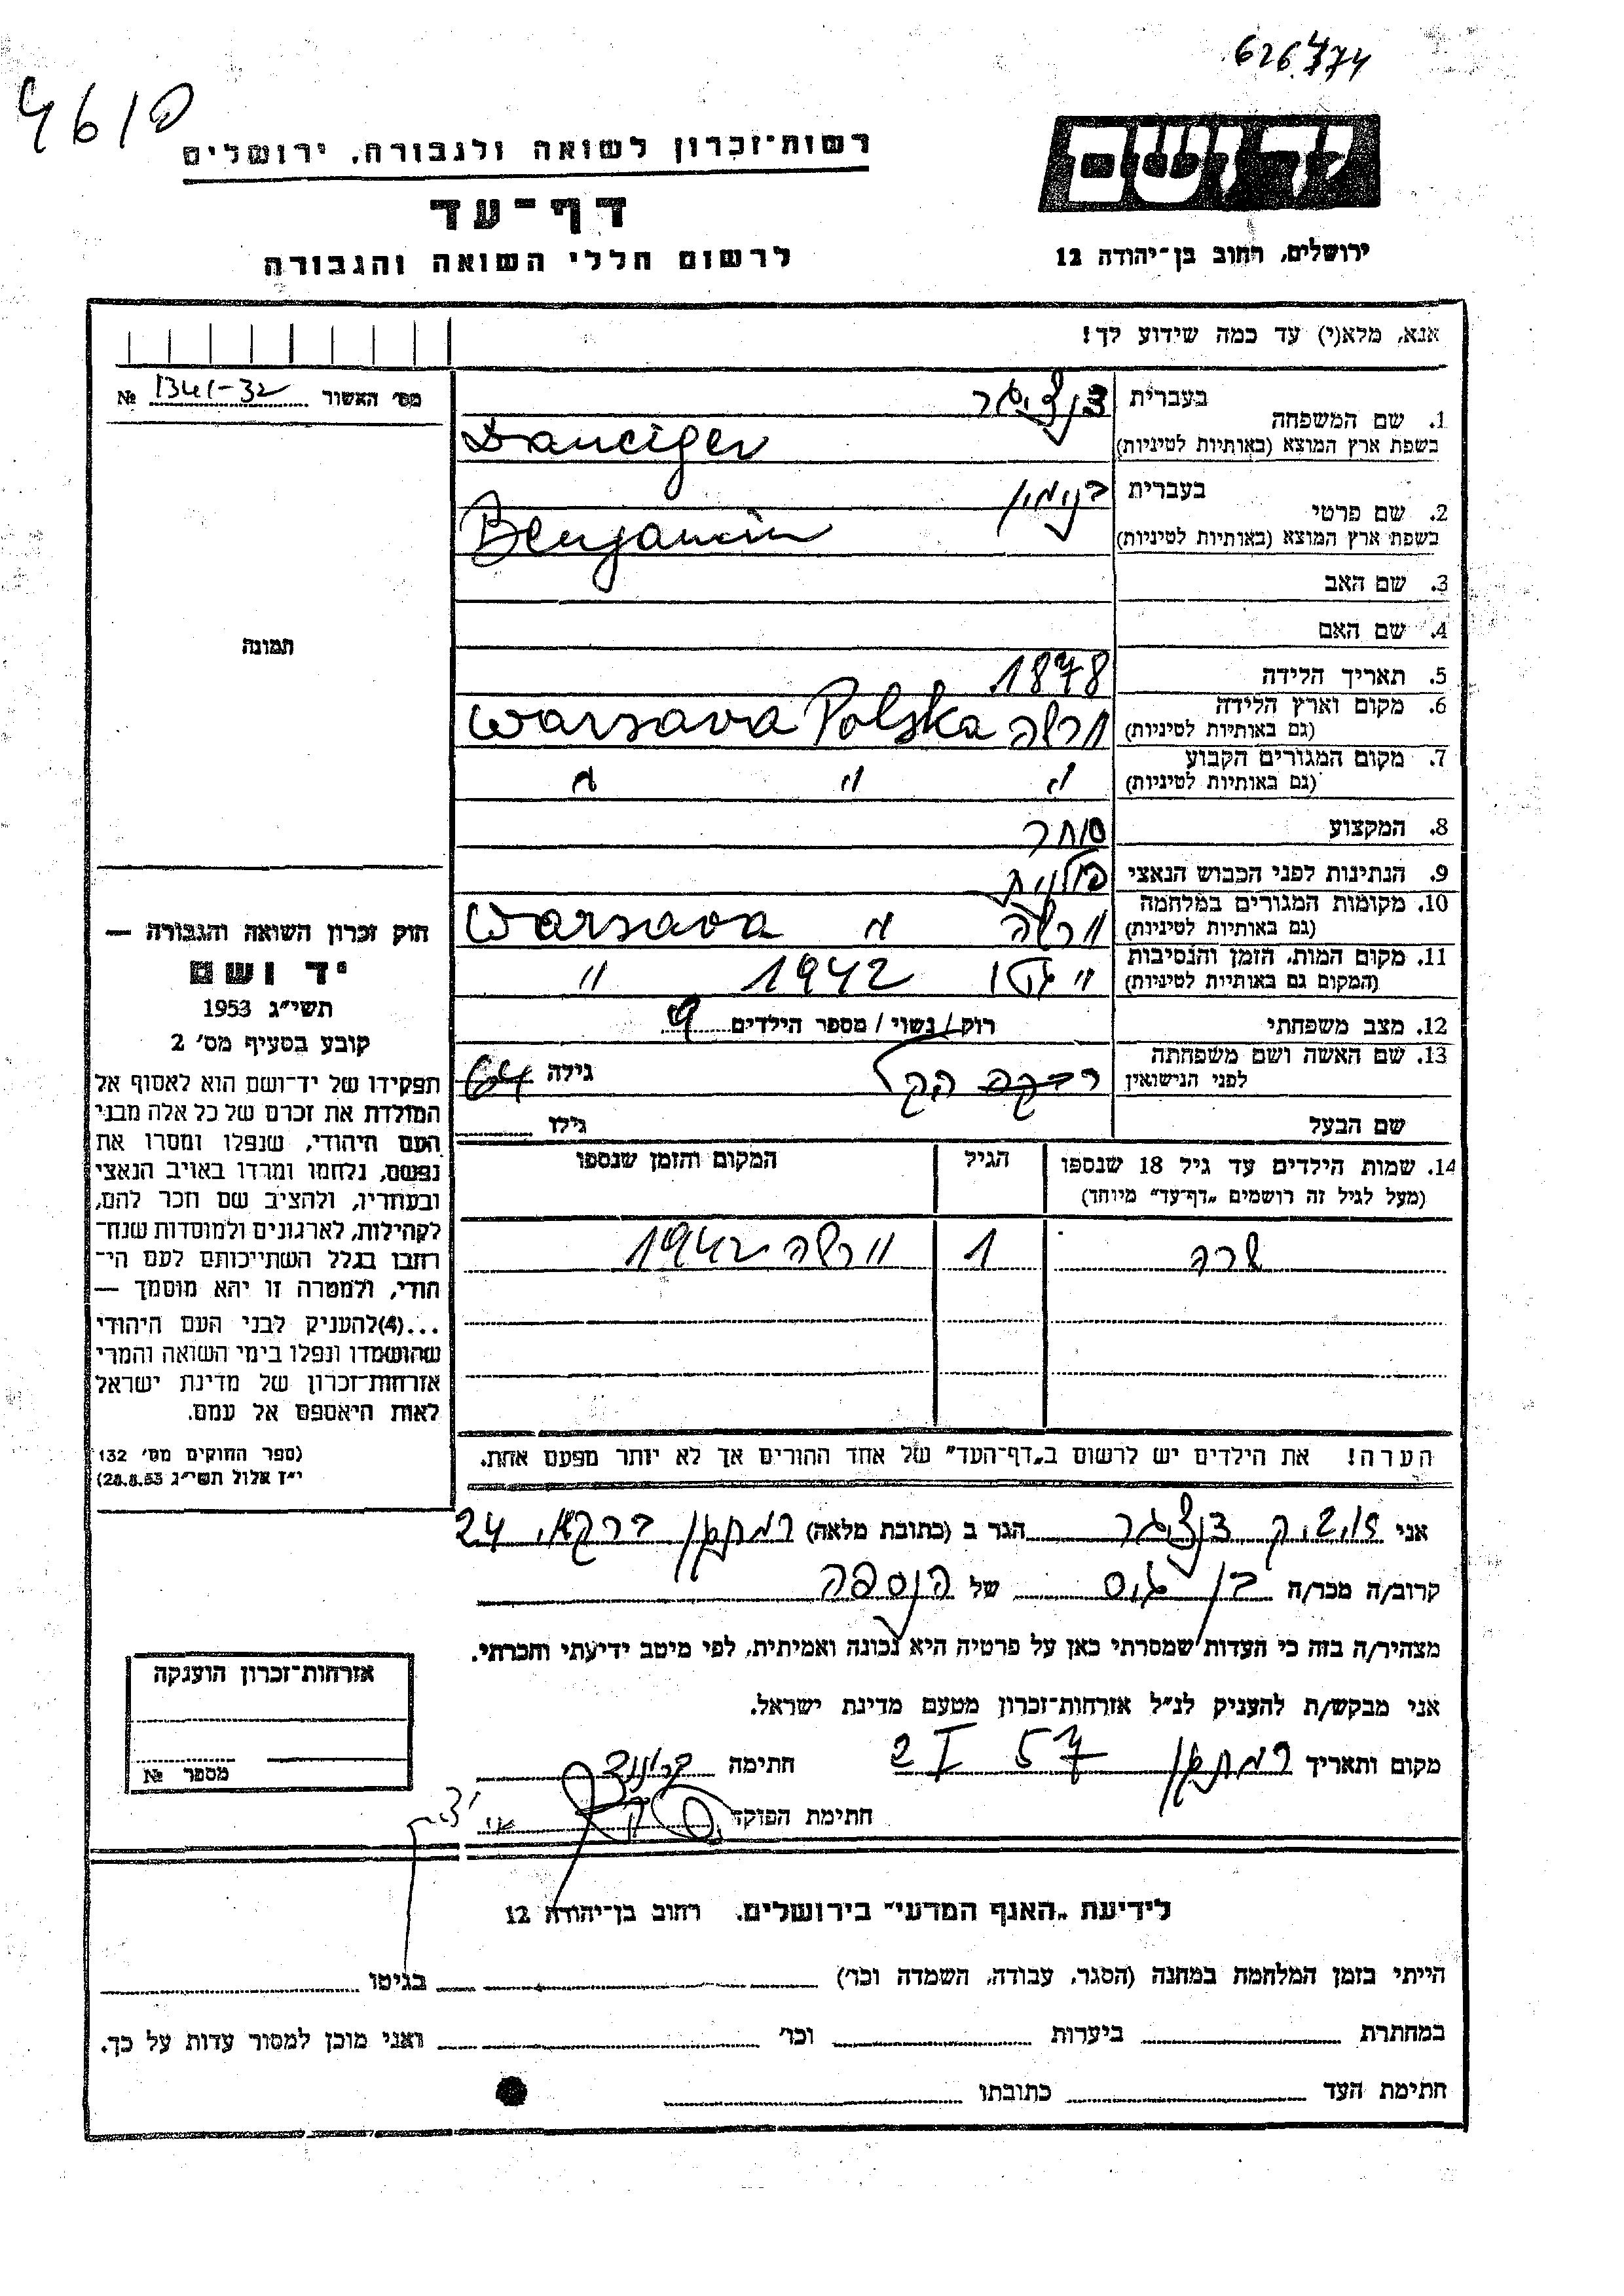 626.474
4610
יד ושם
רשות־זכרון לשואה ולגבורה, ירושלים
דף־עד
ירושלים, רחוב בן־יהודה 12
לרשום חללי השואה והגבורה
אנא, מלא(י) עד כמה שידוע לך!
מס׳ האשור 1341-32 №
1. שם המשפחה
בעברית דנציגר
בשפת ארץ המוצא (באותיות לטיניות) Danciger
2. שם פרטי
בעברית בנימין
בשפת ארץ המוצא (באותיות לטיניות) Benjamin
3. שם האב
4. שם האם
תמונה
5. תאריך הלידה 1878
6. מקום וארץ הלידה
(גם באותיות לטיניות) ורשה Warsava Polska
7. מקום המגורים הקבוע
(גם באותיות לטיניות) " " "
8. המקצוע סוחר
9. הנתינות לפני הכבוש הנאצי פולנית
10. מקומות המגורים במלחמה
(גם באותיות לטיניות) ורשה " Warsava
11. מקום המות, הזמן והנסיבות
(המקום גם באותיות לטיניות) " גטו 1942 "
12. מצב משפחתי רוק/נשוי/מספר הילדים 9
13. שם האשה ושם משפחתה
לפני הנישואין רבקה גילה 64
שם הבעל גילו
14. שמות הילדים עד גיל 18 שנספו
(מעל לגיל זה רושמים „דף־עד״ מיוחד)
הגיל
המקום והזמן שנספו
שרה 1 ורשה 1942
הערה! את הילדים יש לרשום ב„דף־העד״ של אחד ההורים אך לא יותר מפעם אחת.
חוק זכרון השואה והגבורה —
יד ושם
תשי״ג 1953
קובע בסעיף מס׳ 2
תפקידו של יד־ושם הוא לאסוף אל
המולדת את זכרם של כל אלה מבני
העם היהודי, שנפלו ומסרו את
נפשם, נלחמו ומרדו באויב הנאצי
ובעוזריו, ולהציב שם וזכר להם,
לקהילות, לארגונים ולמוסדות שנח־
רבו בגלל השתייכותם לעם הי־
הודי, ולמטרה זו יהא מוסמך —
...(4)להעניק לבני העם היהודי
שהושמדו ונפלו בימי השואה והמרי
אזרחות־זכרון של מדינת ישראל
לאות היאספם אל עמם.
(ספר החוקים מס׳ 132
י״ז אלול תשי״ג 28.8.53)
אני דנציגר הגר ב (כתובת מלאה) רמת גן 24
קרוב/ה מכר/ה בן גיס של הנספה
מצהיר/ה בזה כי העדות שמסרתי כאן על פרטיה היא נכונה ואמיתית, לפי מיטב ידיעתי והכרתי.
אני מבקש/ת להעניק לנ״ל אזרחות־זכרון מטעם מדינת ישראל.
מקום ותאריך רמת גן 2 I 57 חתימה
חתימת הפוקד
אזרחות־זכרון הוענקה
מספר №
לידיעת „האגף המדעי״ בירושלים, רחוב בן־יהודה 12
הייתי בזמן המלחמה במחנה (הסגר, עבודה, השמדה וכו׳) בגיטו
במחתרת ביערות וכו׳ ואני מוכן למסור עדות על כך.
חתימת העד כתובתו